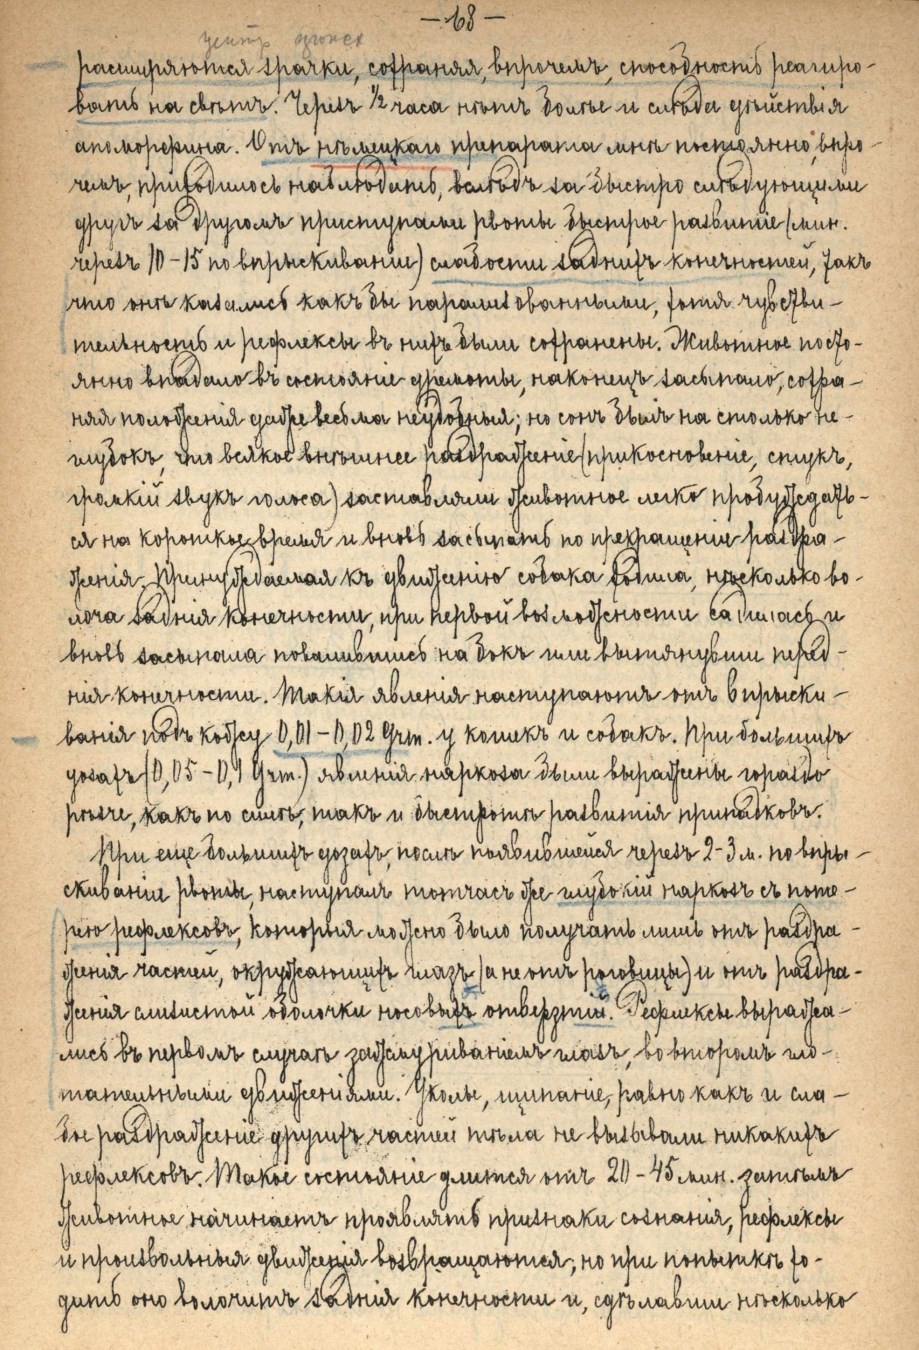 — 68 —
расширяются зрачки, сохраняя, впрочемъ, способность реагиро-
вать на свѣтъ. Черезъ 1/2 часа нѣтъ болѣе и слѣда дѣйствія
апоморфина. Отъ нѣмецкаго препарата мнѣ постоянно, впро-
чемъ, приходилось наблюдать, вслѣдъ за быстро слѣдующими
другъ за другомъ приступами рвоты быстрое развитіе (мин.
черезъ 10–15 по впрыскиваніи) слабости заднихъ конечностей, такъ
что онѣ казались какъ бы парализованными, хотя чувстви-
тельность и рефлексы въ нихъ были сохранены. Животное посто-
янно впадало въ состояніе дремоты, наконецъ засыпало, сохра-
няя положенія даже весьма неудобныя; но сонъ былъ на столько не-
глубокъ, что всякое внѣшнее раздраженіе (прикосновеніе, стукъ,
громкій звукъ голоса) заставляли животное легко пробуждать-
ся на короткое время и вновь засыпать по прекращеніи раздра-
женія. Принуждаемая къ движенію собака ходила, нѣсколько во-
лоча заднія конечности, при первой возможности садилась и
вновь засыпала повалившись на бокъ или вытянувши перед-
нія конечности. Такія явленія наступаютъ отъ впрыски-
ванія подъ кожу 0,01–0,02 Grm. у кошекъ и собакъ. При большихъ
дозахъ (0,05–0,1 Grm.) явленія наркоза были выражены гораздо
рѣзче, какъ по силѣ, такъ и быстротѣ развитія припадковъ.
При еще большихъ дозахъ, послѣ появившейся черезъ 2–3 м. по впры-
скиваніи рвоты, наступалъ тотчасъ же глубокій наркозъ съ поте-
рею рефлексовъ, которыя можно было получать лишь отъ раздра-
женія частей, окружающихъ глазъ (а не отъ роговицы) и отъ раздра-
женія слизистой оболочки носовыхъ отверзтій. Рефлексы выража-
лись въ первомъ случаѣ зажмуриваніемъ глазъ, во второмъ гло-
тательными движеніями. Уколы, щипаніе, равно какъ и сла-
бое раздраженіе другихъ частей тѣла не вызывали никакихъ
рефлексовъ. Такое состояніе длится отъ 20–45 мин. затѣмъ
животное начинаетъ проявлять признаки сознанія, рефлексы
и произвольныя движенія возвращаются; но при попыткѣ хо-
дить оно волочитъ заднія конечности и, сдѣлавши нѣсколько